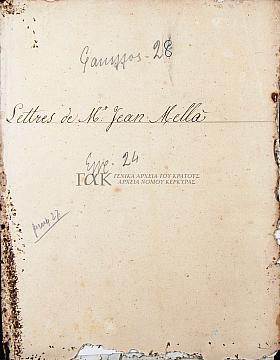 28
Lettres de Mr. Jean Mellà
Εγγρ. 24
ΓΑΚ ΓΕΝΙΚΑ ΑΡΧΕΙΑ ΤΟΥ ΚΡΑΤΟΥΣ
ΑΡΧΕΙΑ ΝΟΜΟΥ ΚΕΡΚΥΡΑΣ
27